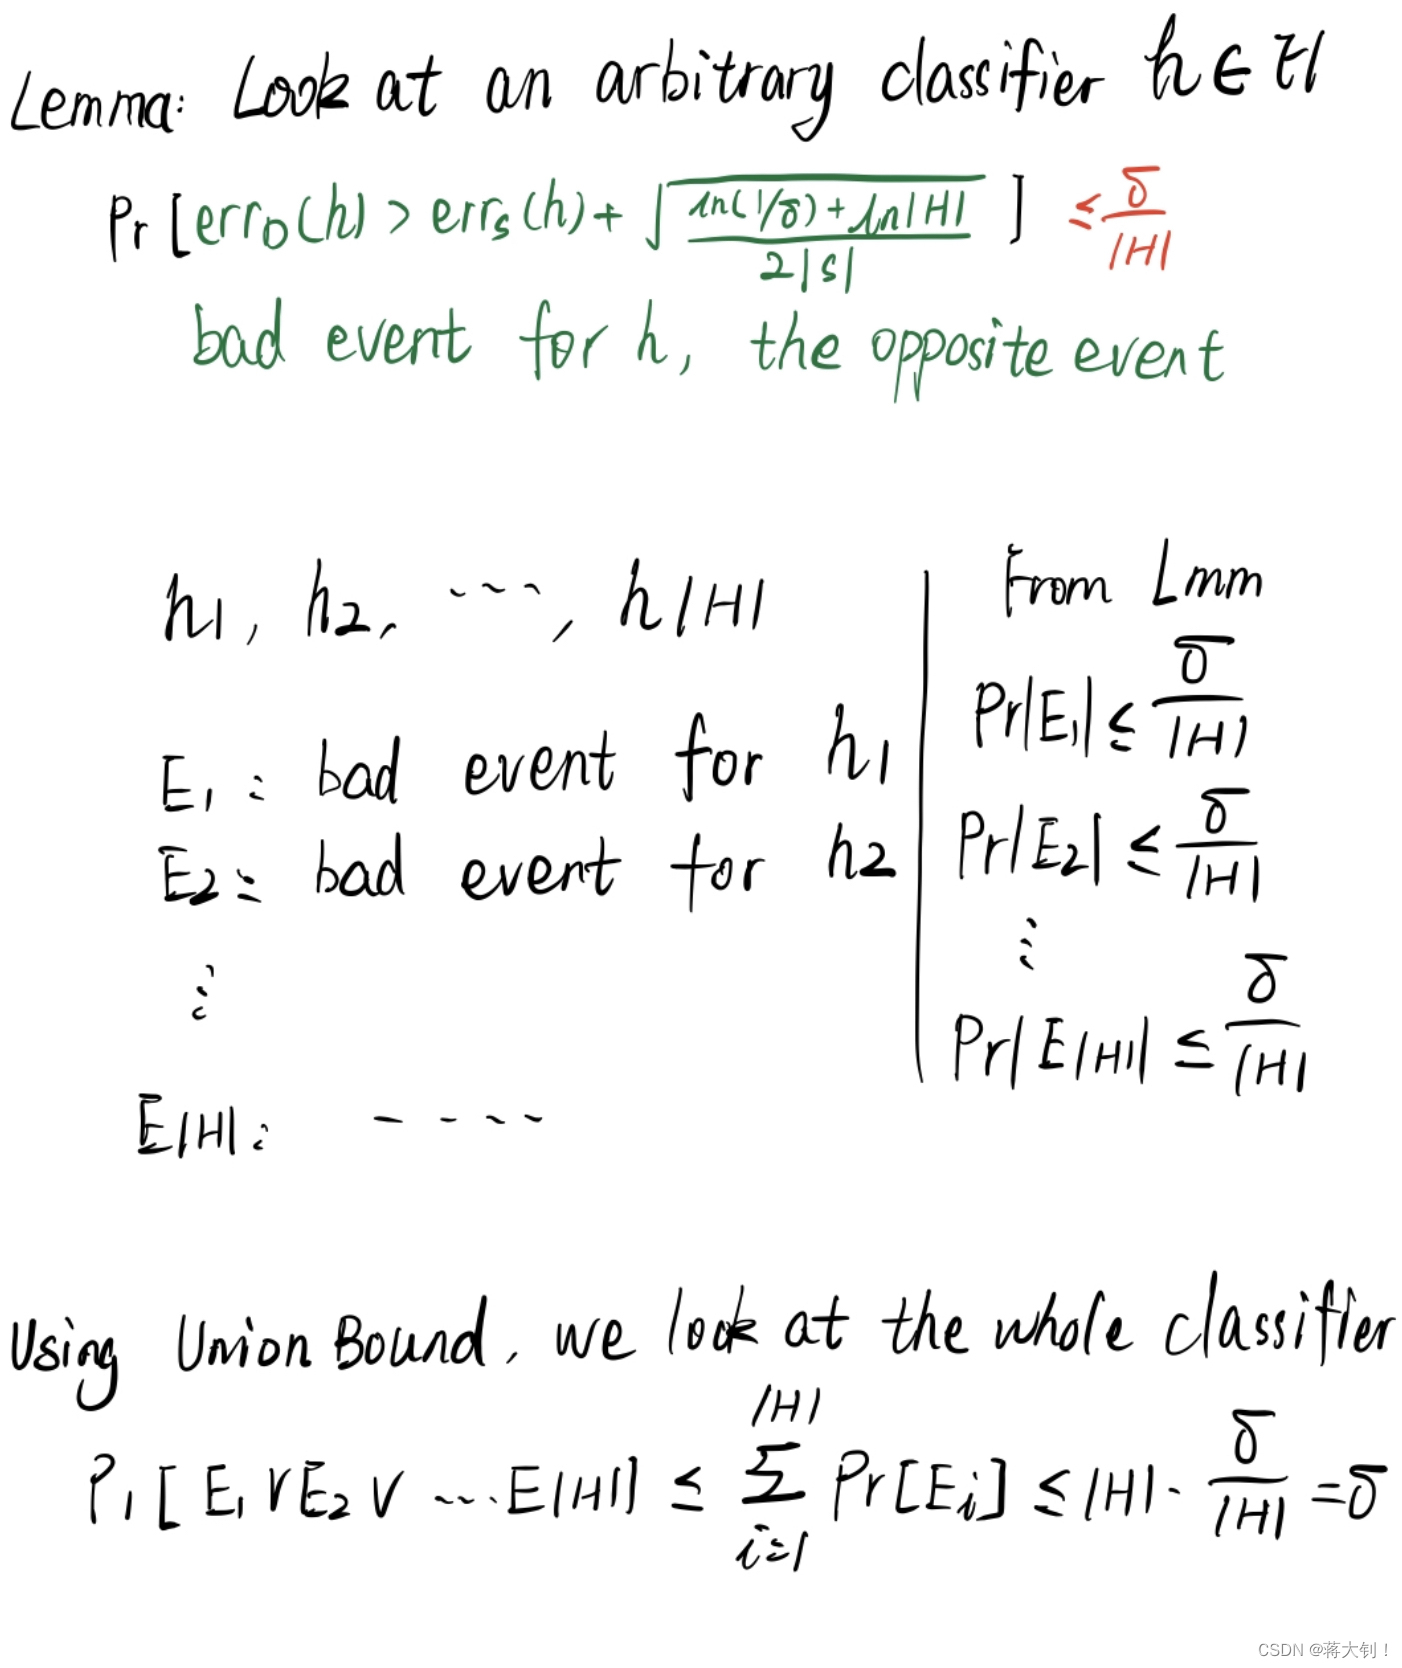 Lemma: Look at an arbitrary classifier h ∈ H
Pr [err_D(h) > err_S(h) + √((ln(1/δ) + ln|H|) / (2|S|)) ] ≤ δ/|H|
bad event for h, the opposite event
h1, h2, ----, h|H|
E1: bad event for h1
E2: bad event for h2
⋮
E|H|: ----
From Lmm
Pr|E1| ≤ δ/|H|
Pr|E2| ≤ δ/|H|
⋮
Pr|E|H|| ≤ δ/|H|
Using Union Bound, we look at the whole classifier
Pr [E1 ∨ E2 ∨ ... E|H|] ≤ ∑_{i=1}^{|H|} Pr[Ei] ≤ |H| · δ/|H| = δ
CSDN @蒋大钊！